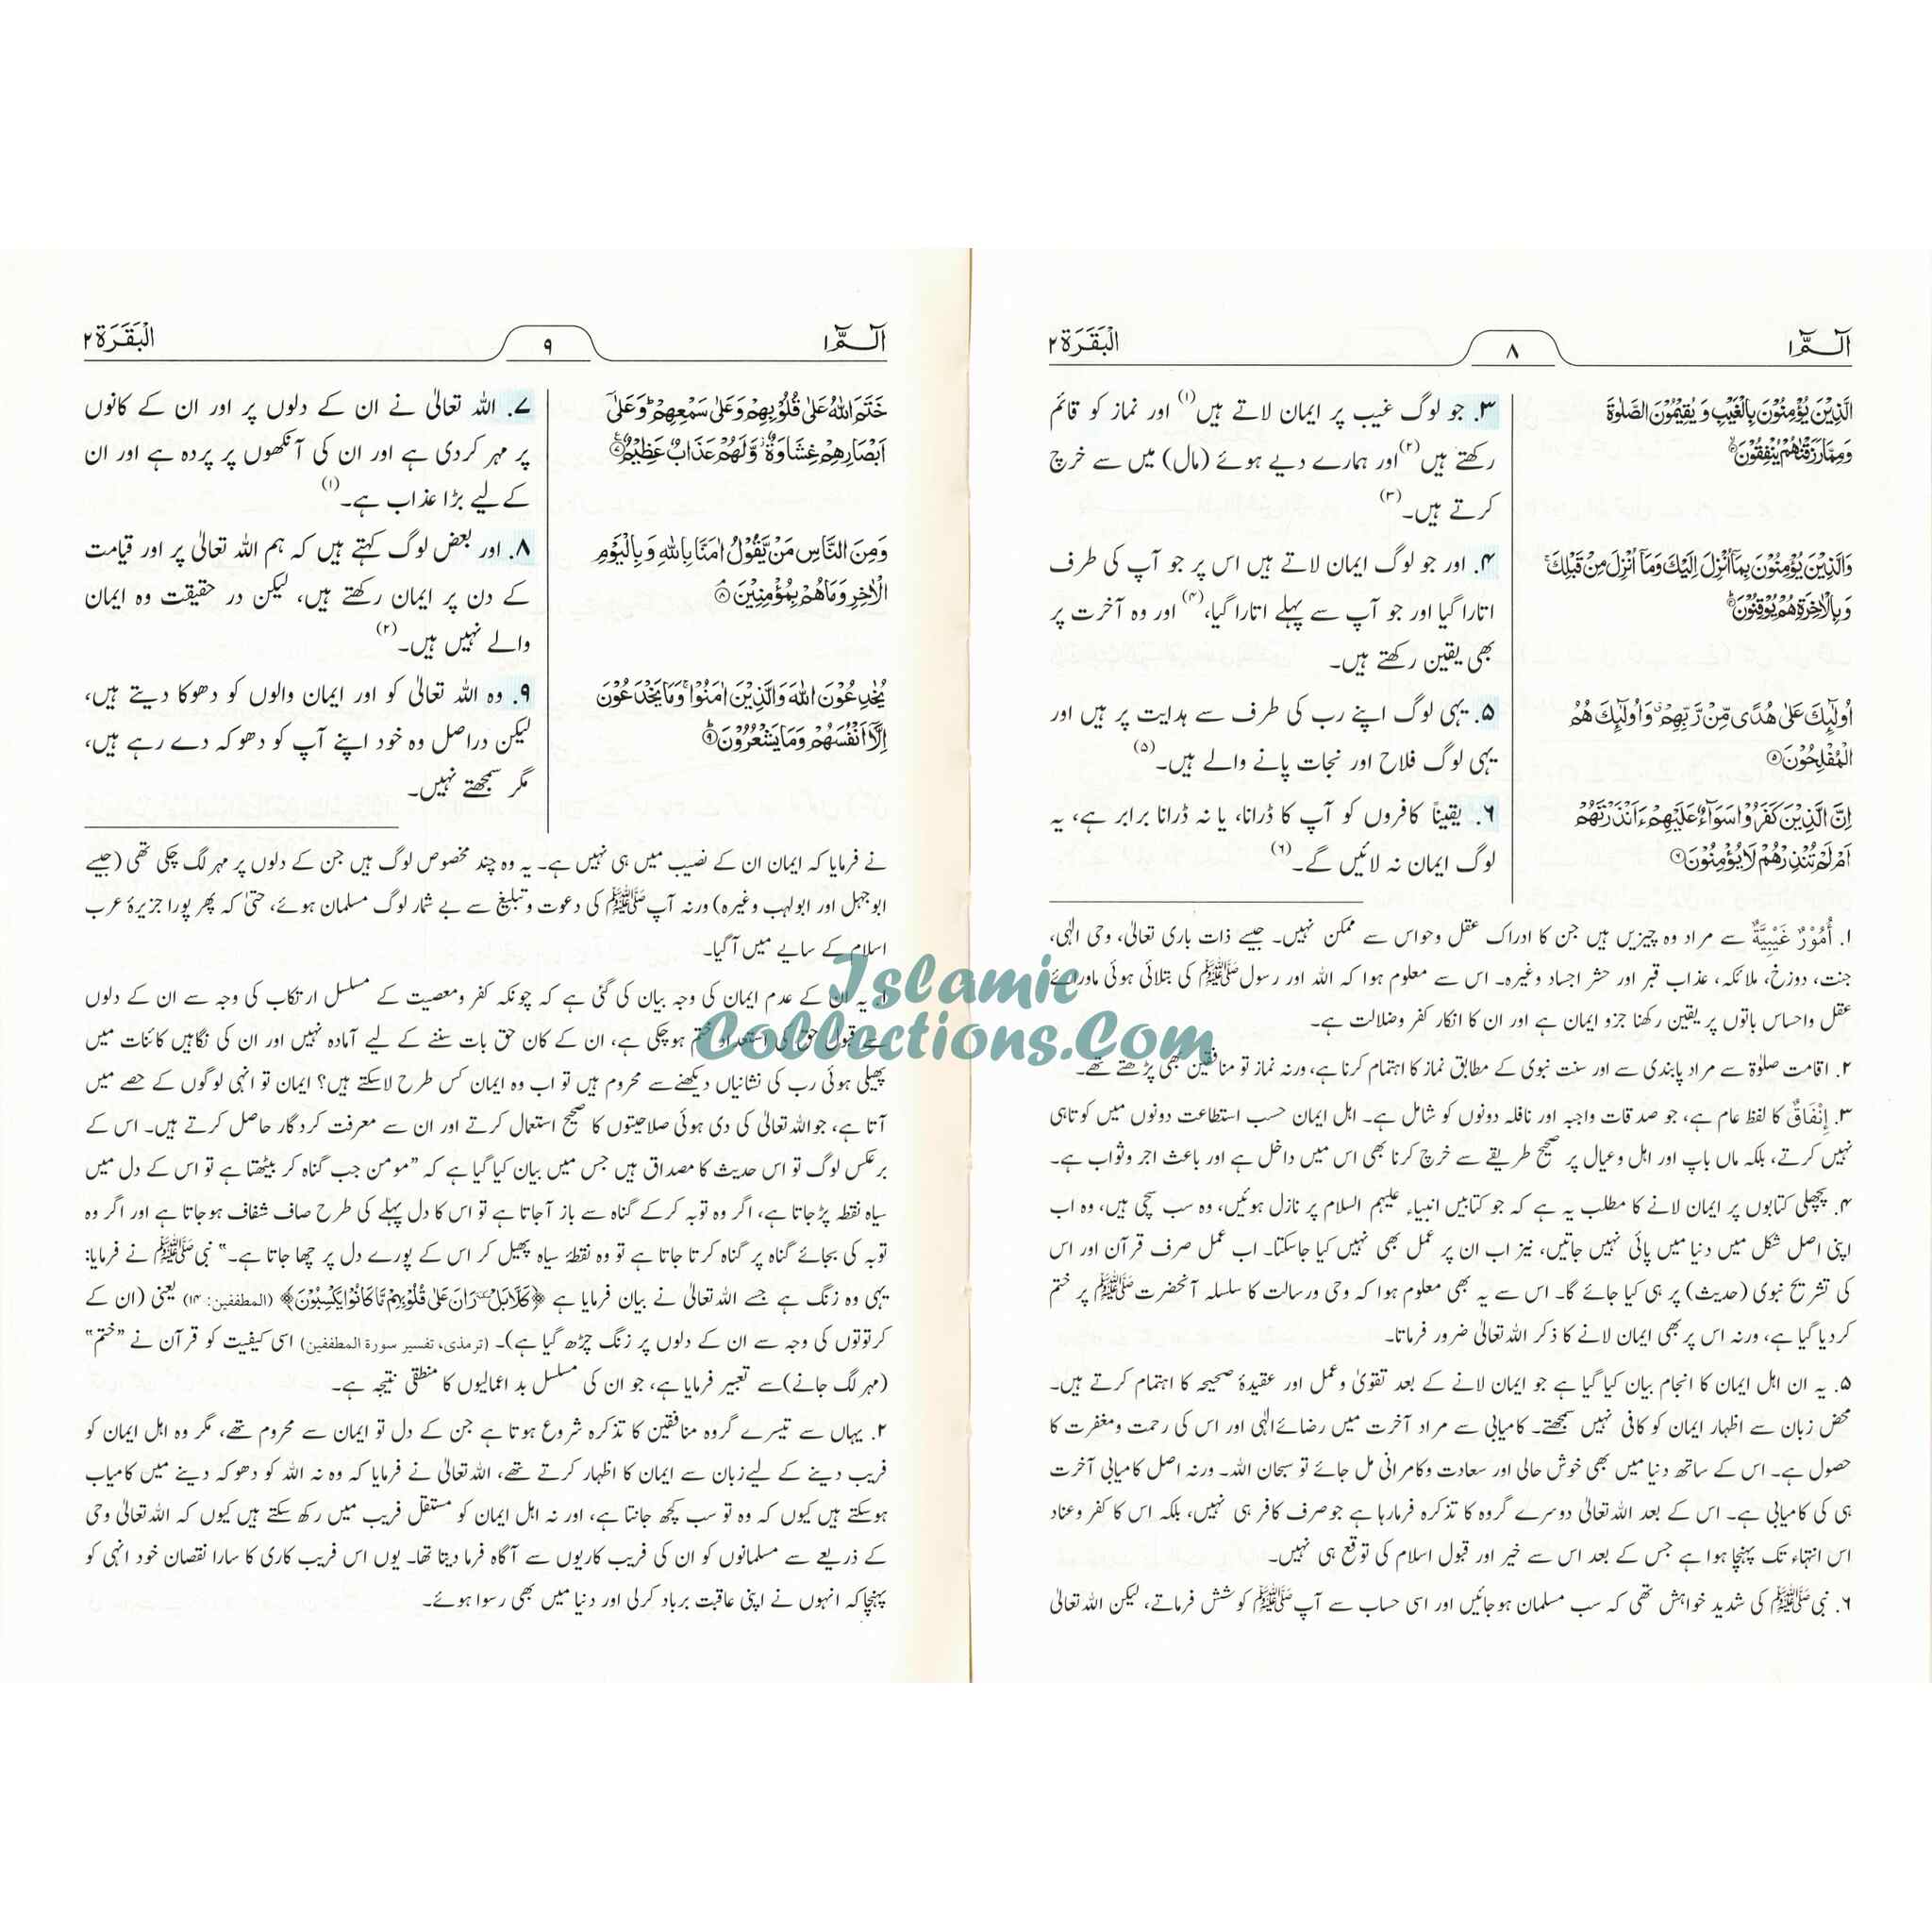 الٓـمّٓ ١
٨
الْبَقَرَة ٢
الَّذِيْنَ يُؤْمِنُوْنَ بِالْغَيْبِ وَيُقِيْمُوْنَ الصَّلٰوةَ
وَمِمَّا رَزَقْنٰهُمْ يُنْفِقُوْنَ ۙ
۳. جو لوگ غیب پر ایمان لاتے ہیں(۱) اور نماز کو قائم
رکھتے ہیں(۲) اور ہمارے دیے ہوئے (مال) میں سے خرچ
کرتے ہیں۔(۳)
وَالَّذِيْنَ يُؤْمِنُوْنَ بِمَآ اُنْزِلَ اِلَيْكَ وَمَآ اُنْزِلَ مِنْ قَبْلِكَ ۚ
وَبِالْاٰخِرَةِ هُمْ يُوْقِنُوْنَ ؕ
۴. اور جو لوگ ایمان لاتے ہیں اس پر جو آپ کی طرف
اتارا گیا اور جو آپ سے پہلے اتارا گیا،(۴) اور وہ آخرت پر
بھی یقین رکھتے ہیں۔
اُولٰٓئِكَ عَلٰى هُدًى مِّنْ رَّبِّهِمْ ۙ وَاُولٰٓئِكَ هُمُ
الْمُفْلِحُوْنَ ۵
۵. یہی لوگ اپنے رب کی طرف سے ہدایت پر ہیں اور
یہی لوگ فلاح اور نجات پانے والے ہیں۔(۵)
اِنَّ الَّذِيْنَ كَفَرُوْا سَوَآءٌ عَلَيْهِمْ ءَاَنْذَرْتَهُمْ
اَمْ لَمْ تُنْذِرْهُمْ لَا يُؤْمِنُوْنَ ۶
۶. یقیناً کافروں کو آپ کا ڈرانا، یا نہ ڈرانا برابر ہے، یہ
لوگ ایمان نہ لائیں گے۔(۶)
۱. أُمُوْرٌ غَيْبِيَّةٌ سے مراد وہ چیزیں ہیں جن کا ادراک عقل وحواس سے ممکن نہیں۔ جیسے ذات باری تعالیٰ، وحی الٰہی،
جنت، دوزخ، ملائکہ، عذاب قبر اور حشر اجساد وغیرہ۔ اس سے معلوم ہوا کہ اللہ اور رسول ﷺ کی بتلائی ہوئی ماورائے
عقل واحساس باتوں پر یقین رکھنا جزو ایمان ہے اور ان کا انکار کفر وضلالت ہے۔
۲. اقامت صلوٰۃ سے مراد پابندی سے اور سنت نبوی کے مطابق نماز کا اہتمام کرنا ہے، ورنہ نماز تو منافقین بھی پڑھتے تھے۔
۳. إِنْفَاقٌ کا لفظ عام ہے، جو صدقات واجبہ اور نافلہ دونوں کو شامل ہے۔ اہل ایمان حسب استطاعت دونوں میں کوتاہی
نہیں کرتے، بلکہ ماں باپ اور اہل وعیال پر صحیح طریقے سے خرچ کرنا بھی اس میں داخل ہے اور باعث اجر وثواب ہے۔
۴. پچھلی کتابوں پر ایمان لانے کا مطلب یہ ہے کہ جو کتابیں انبیاء علیہم السلام پر نازل ہوئیں، وہ سب سچی ہیں، وہ اب
اپنی اصل شکل میں دنیا میں پائی نہیں جاتیں، نیز اب ان پر عمل بھی نہیں کیا جاسکتا۔ اب عمل صرف قرآن اور اس
کی تشریح نبوی (حدیث) پر ہی کیا جائے گا۔ اس سے یہ بھی معلوم ہوا کہ وحی ورسالت کا سلسلہ آنحضرت ﷺ پر ختم
کردیا گیا ہے، ورنہ اس پر بھی ایمان لانے کا ذکر اللہ تعالیٰ ضرور فرماتا۔
۵. یہ ان اہل ایمان کا انجام بیان کیا گیا ہے جو ایمان لانے کے بعد تقویٰ وعمل اور عقیدۂ صحیحہ کا اہتمام کرتے ہیں۔
محض زبان سے اظہار ایمان کو کافی نہیں سمجھتے۔ کامیابی سے مراد آخرت میں رضائے الٰہی اور اس کی رحمت ومغفرت کا
حصول ہے۔ اس کے ساتھ دنیا میں بھی خوش حالی اور سعادت وکامرانی مل جائے تو سبحان اللہ۔ ورنہ اصل کامیابی آخرت
ہی کی کامیابی ہے۔ اس کے بعد اللہ تعالیٰ دوسرے گروہ کا تذکرہ فرمارہا ہے جو صرف کافر ہی نہیں، بلکہ اس کا کفر وعناد
اس انتہاء تک پہنچا ہوا ہے جس کے بعد اس سے خیر اور قبول اسلام کی توقع ہی نہیں۔
۶. نبی ﷺ کی شدید خواہش تھی کہ سب مسلمان ہوجائیں اور اسی حساب سے آپ ﷺ کوشش فرماتے، لیکن اللہ تعالیٰ
الٓـمّٓ ١
٩
الْبَقَرَة ٢
خَتَمَ اللّٰهُ عَلٰى قُلُوْبِهِمْ وَعَلٰى سَمْعِهِمْ ؕ وَعَلٰٓى
اَبْصَارِهِمْ غِشَاوَةٌ ۫ وَّلَهُمْ عَذَابٌ عَظِيْمٌ ۷
۷. اللہ تعالیٰ نے ان کے دلوں پر اور ان کے کانوں
پر مہر کردی ہے اور ان کی آنکھوں پر پردہ ہے اور ان
کے لیے بڑا عذاب ہے۔(۱)
وَمِنَ النَّاسِ مَنْ يَّقُوْلُ اٰمَنَّا بِاللّٰهِ وَبِالْيَوْمِ
الْاٰخِرِ وَمَا هُمْ بِمُؤْمِنِيْنَ ۘ ۸
۸. اور بعض لوگ کہتے ہیں کہ ہم اللہ تعالیٰ پر اور قیامت
کے دن پر ایمان رکھتے ہیں، لیکن در حقیقت وہ ایمان
والے نہیں ہیں۔(۲)
يُخٰدِعُوْنَ اللّٰهَ وَالَّذِيْنَ اٰمَنُوْا ۚ وَمَا يَخْدَعُوْنَ
اِلَّآ اَنْفُسَهُمْ وَمَا يَشْعُرُوْنَ ؕ ۹
۹. وہ اللہ تعالیٰ کو اور ایمان والوں کو دھوکا دیتے ہیں،
لیکن دراصل وہ خود اپنے آپ کو دھوکہ دے رہے ہیں،
مگر سمجھتے نہیں۔
نے فرمایا کہ ایمان ان کے نصیب میں ہی نہیں ہے۔ یہ وہ چند مخصوص لوگ ہیں جن کے دلوں پر مہر لگ چکی تھی (جیسے
ابوجہل اور ابولہب وغیرہ) ورنہ آپ ﷺ کی دعوت وتبلیغ سے بے شمار لوگ مسلمان ہوئے، حتیٰ کہ پھر پورا جزیرۂ عرب
اسلام کے سایے میں آگیا۔
۱. یہ ان کے عدم ایمان کی وجہ بیان کی گئی ہے کہ چونکہ کفر ومعصیت کے مسلسل ارتکاب کی وجہ سے ان کے دلوں
سے قبول حق کی استعداد ختم ہوچکی ہے، ان کے کان حق بات سننے کے لیے آمادہ نہیں اور ان کی نگاہیں کائنات میں
پھیلی ہوئی رب کی نشانیاں دیکھنے سے محروم ہیں تو اب وہ ایمان کس طرح لاسکتے ہیں؟ ایمان تو انہی لوگوں کے حصے میں
آتا ہے، جو اللہ تعالیٰ کی دی ہوئی صلاحیتوں کا صحیح استعمال کرتے اور ان سے معرفت کردگار حاصل کرتے ہیں۔ اس کے
برعکس لوگ تو اس حدیث کا مصداق ہیں جس میں بیان کیا گیا ہے کہ "مومن جب گناہ کر بیٹھتا ہے تو اس کے دل میں
سیاہ نقطہ پڑجاتا ہے، اگر وہ توبہ کرکے گناہ سے باز آجاتا ہے تو اس کا دل پہلے کی طرح صاف شفاف ہوجاتا ہے اور اگر وہ
توبہ کی بجائے گناہ پر گناہ کرتا جاتا ہے تو وہ نقطۂ سیاہ پھیل کر اس کے پورے دل پر چھا جاتا ہے۔" نبی ﷺ نے فرمایا:
یہی وہ زنگ ہے جسے اللہ تعالیٰ نے بیان فرمایا ہے ﴿كَلَّا بَلْ ۜ رَانَ عَلٰى قُلُوْبِهِمْ مَّا كَانُوْا يَكْسِبُوْنَ﴾ (المطففين: ١٤) یعنی (ان کے
کرتوتوں کی وجہ سے ان کے دلوں پر زنگ چڑھ گیا ہے)۔ (ترمذی، تفسیر سورة المطففین) اسی کیفیت کو قرآن نے "ختم"
(مہر لگ جانے) سے تعبیر فرمایا ہے، جو ان کی مسلسل بد اعمالیوں کا منطقی نتیجہ ہے۔
۲. یہاں سے تیسرے گروہ منافقین کا تذکرہ شروع ہوتا ہے جن کے دل تو ایمان سے محروم تھے، مگر وہ اہل ایمان کو
فریب دینے کے لیے زبان سے ایمان کا اظہار کرتے تھے، اللہ تعالیٰ نے فرمایا کہ وہ نہ اللہ کو دھوکہ دینے میں کامیاب
ہوسکتے ہیں کیوں کہ وہ تو سب کچھ جانتا ہے، اور نہ اہل ایمان کو مستقل فریب میں رکھ سکتے ہیں کیوں کہ اللہ تعالیٰ وحی
کے ذریعے سے مسلمانوں کو ان کی فریب کاریوں سے آگاہ فرما دیتا تھا۔ یوں اس فریب کاری کا سارا نقصان خود انہی کو
پہنچا کہ انہوں نے اپنی عاقبت برباد کرلی اور دنیا میں بھی رسوا ہوئے۔
Islamic
Collections.Com